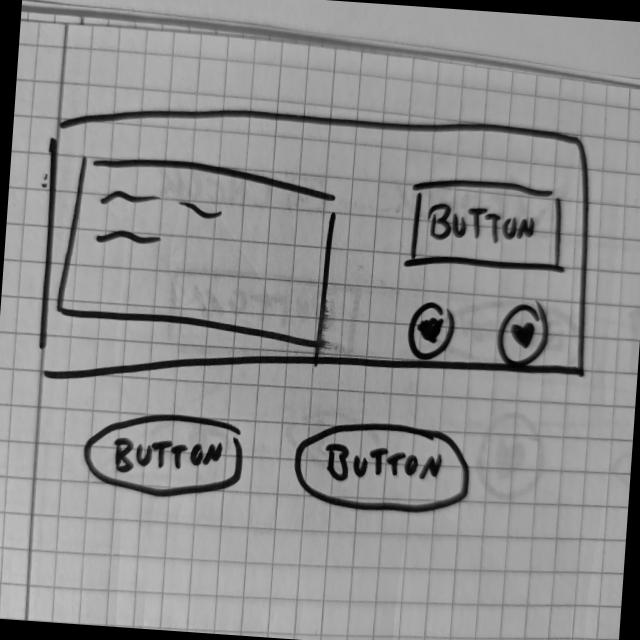 BUTTON
BUTTON BUTTON